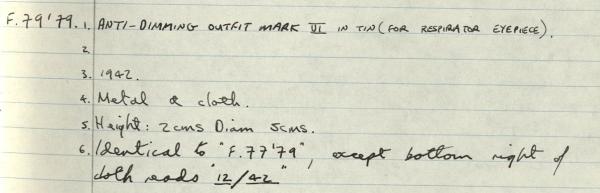 F.79'79. 1. ANTI-DIMMING OUTFIT MARK VI IN TIN (FOR RESPIRATOR EYEPIECE).
2.
3. 1942.
4. Metal & cloth.
5. Height: 2cms Diam 5cms.
6. Identical to "F.77'79", except bottom right of
cloth reads "12/42"